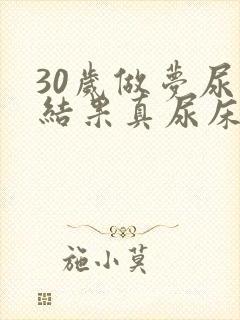 30歲做夢尿
結果真尿床
施小莫